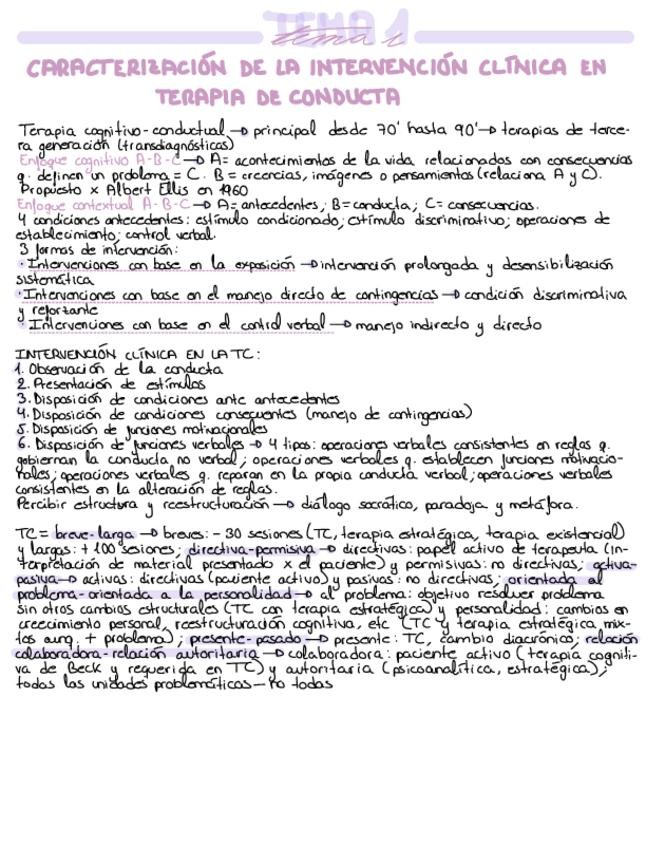 TEMA 1
tema 1
CARACTERIZACIÓN DE LA INTERVENCIÓN CLÍNICA EN
TERAPIA DE CONDUCTA
Terapia cognitivo-conductual → principal desde 70' hasta 90' → terapias de terce-
ra generación (transdiagnósticas)
Enfoque cognitivo A-B-C → A= acontecimientos de la vida relacionados con consecuencias
q. definen un problema = C. B = creencias, imágenes o pensamientos (relaciona A y C).
Propuesto x Albert Ellis en 1960
Enfoque contextual A-B-C → A= antecedentes; B= conducta; C= consecuencias.
4 condiciones antecedentes: estímulo condicionado; estímulo discriminativo; operaciones de
establecimiento; control verbal.
3 formas de intervención:
· Intervenciones con base en la exposición → intervención prolongada y desensibilización
sistemática
· Intervenciones con base en el manejo directo de contingencias → condición discriminativa
y reforzante
· Intervenciones con base en el control verbal → manejo indirecto y directo
INTERVENCIÓN CLÍNICA EN LA TC:
1. Observación de la conducta
2. Presentación de estímulos
3. Disposición de condiciones ante antecedentes
4. Disposición de condiciones consecuentes (manejo de contingencias)
5. Disposición de funciones motivacionales
6. Disposición de funciones verbales → 4 tipos: operaciones verbales consistentes en reglas q.
gobiernan la conducta no verbal; operaciones verbales q. establecen funciones motivacio-
nales; operaciones verbales q. reparan en la propia conducta verbal; operaciones verbales
consistentes en la alteración de reglas.
Percibir estructura y reestructuración → diálogo socrático, paradoja y metáfora.
TC = breve-larga → breves: - 30 sesiones (TC, terapia estratégica, terapia existencial)
y largas: + 100 sesiones; directiva-permisiva → directivas: papel activo de terapeuta (in-
terpretación de material presentado x el paciente) y permisivas: no directivas; activa-
pasiva → activas: directivas (paciente activo) y pasivas: no directivas; orientada al
problema-orientada a la personalidad → al problema: objetivo resolver problema
sin otros cambios estructurales (TC con terapia estratégica) y personalidad: cambios en
crecimiento personal, reestructuración cognitiva, etc (TC y terapia estratégica, mix-
tos aunq. + problema); presente-pasado → presente: TC, cambio diacrónico; relación
colaboradora-relación autoritaria → colaboradora: paciente activo (terapia cogniti-
va de Beck y requerida en TC) y autoritaria (psicoanalítica, estratégica);
todas las unidades problemáticas — no todas